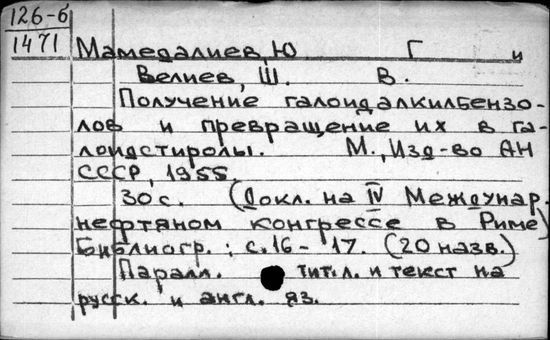 126-б
1471
Мамедалиев, Ю Г и
Велиев, Ш. В.
Получение галоидалкилбензо-
лов и превращение их в га-
лоидстиролы. М., Изд-во АН
СССР, 1955.
30 с. (Докл. на IV Междунар.
нефтяном конгрессе в Риме)
Библиогр.: с. 16 - 17. (20 назв.)
Паралл. тит. л. и текст на
русск. и англ. яз.